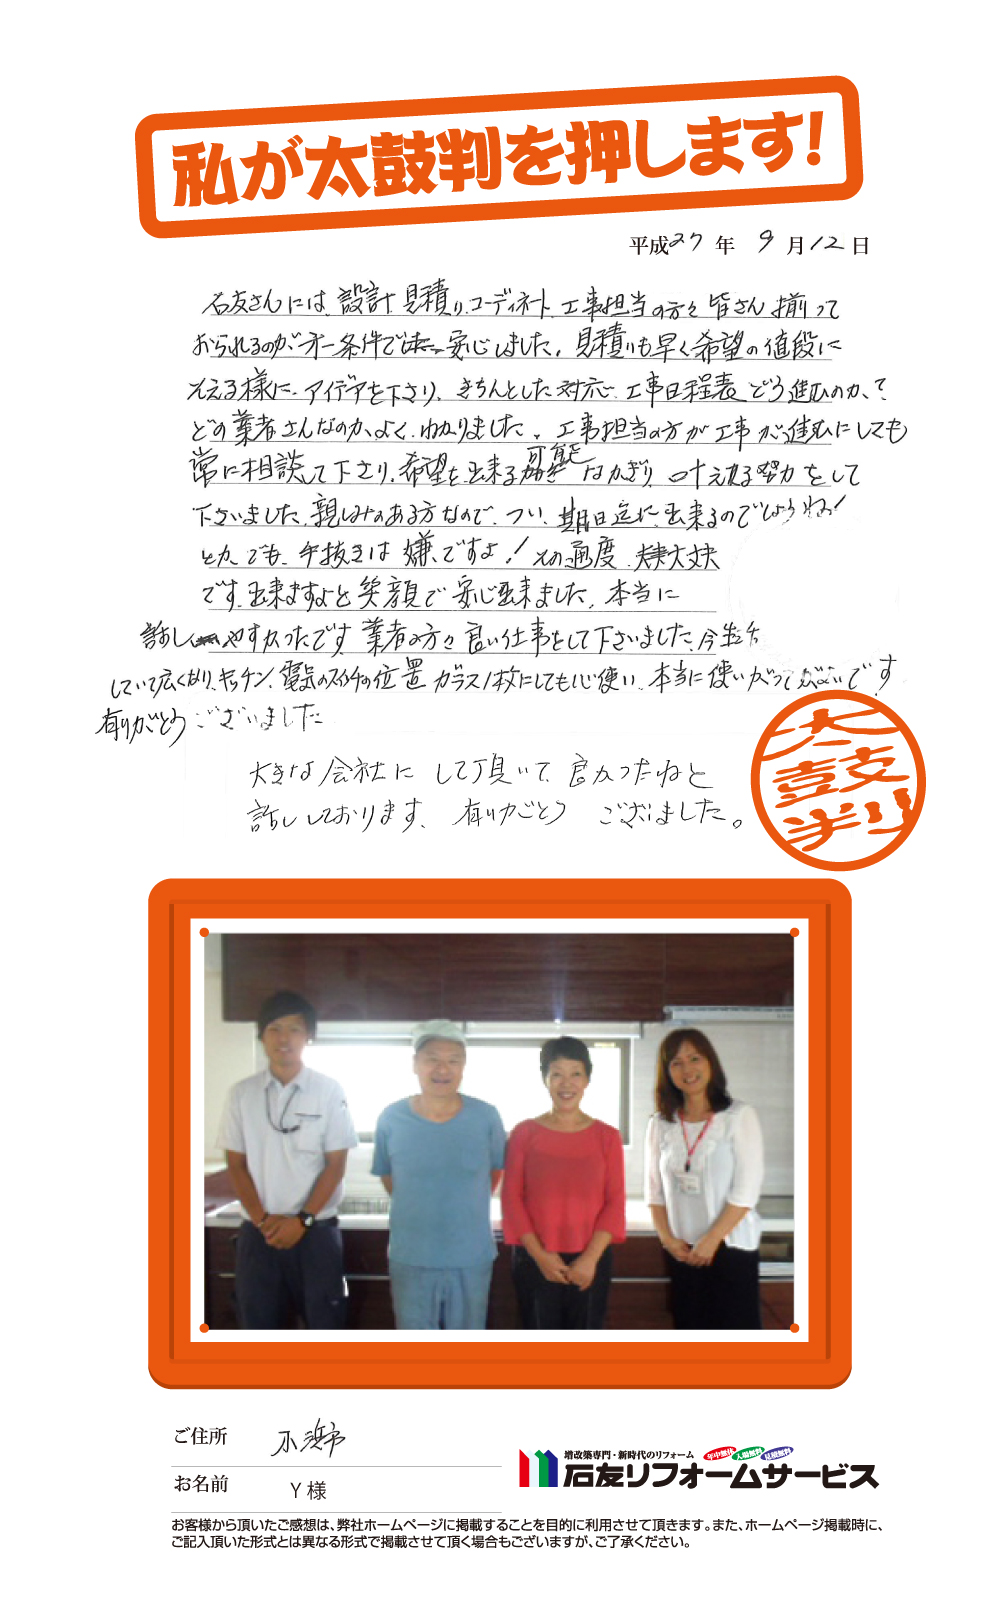 私が太鼓判を押します!
平成27年 9月12日
石友さんには、設計、見積り、コーディネート、工事担当の方々皆さん揃って
おられるのが才一条件で 安心しました。見積りも早く希望の値段に
そえる様に、アイデアを下さり、きちんとした対応、工事日程表どう進むのか、
どの業者さんなのか、よく、わかりました。工事担当の方が工事が進むにしても
常に相談して下さり、希望を出来る可能なかぎり、叶える努力をして
下さいました。親しみのある方なので、つい、期日迄に出来るのでしょうね!
とか、でも、手抜きは嫌ですよ!その通度、大丈夫
です。出来ますよと笑顔で安心出来ました。本当に
話し やすかったです。業者の方々良い仕事をして下さいました。今
していて広くなり、キッチン、電気のスイッチの位置 ガラス1枚にしても心使い、本当に使いがって です
有りがとうございました
大きな会社に して頂いて、良かったねと
話ししております。有りがとう ございました。
太鼓判
ご住所 小浜市
お名前 Y様
増改築専門・新時代のリフォーム 年中無休 入場無料 見積無料
石友リフォームサービス
お客様から頂いたご感想は、弊社ホームページに掲載することを目的に利用させて頂きます。また、ホームページ掲載時に、
ご記入頂いた形式とは異なる形式で掲載させて頂く場合もございますが、ご了承ください。